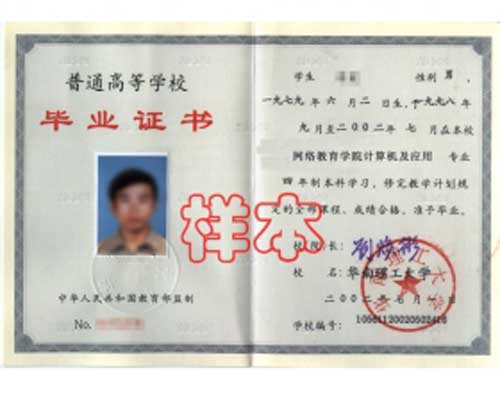 普通高等学校
毕业证书
样本
中华人民共和国教育部监制
No.
学生 性别 男,
一九七九 年 六 月 二 日生,于一九九八年
九 月至二〇〇二年 七 月在本校
网络教育学院计算机及应用 专业
四 年制本科学习,修完教学计划规
定的全部课程,成绩合格,准予毕业。
校(院)长:
校 名: 华南理工大学
二〇〇二年七月 日
学校编号: